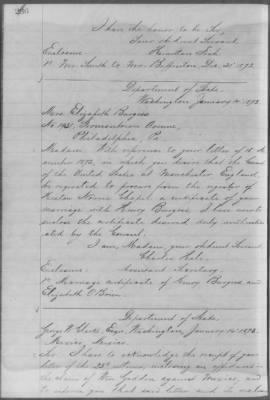 I have the honor to be Sir,
Your obedient Servant
Enclosure Hamilton Fish
Mr. Smith to Mr. Dec. 21, 1872.
Department of State,
Washington, January 14, 1873.
Mrs. Elizabeth Burgess
No. 1921, Avenue,
Philadelphia Pa.
Madam: With reference to your letter of 18 De-
cember 1872, in which you desire that the Consul
of the United States at Manchester England,
be requested to procure from the register of
Chapel a certificate of your
marriage with Henry Burgess, I have now to
enclose the certificate desired duly authenti-
cated by the Consul.
I am, Madam, your obedient Servant
Charles Hale,
Enclosure: Assistant Secretary.
Marriage certificate of Henry Burgess and
Elizabeth O'Brien.
Department of State,
George W. Esqre, Washington, January 14, 1873.
Mexico, Mexico.
Sir: I have to acknowledge the receipt of your
letter of the 28th enclosing an affidavit
the claim of Wm against Mexico, and
to inform you that said letter and its enclo